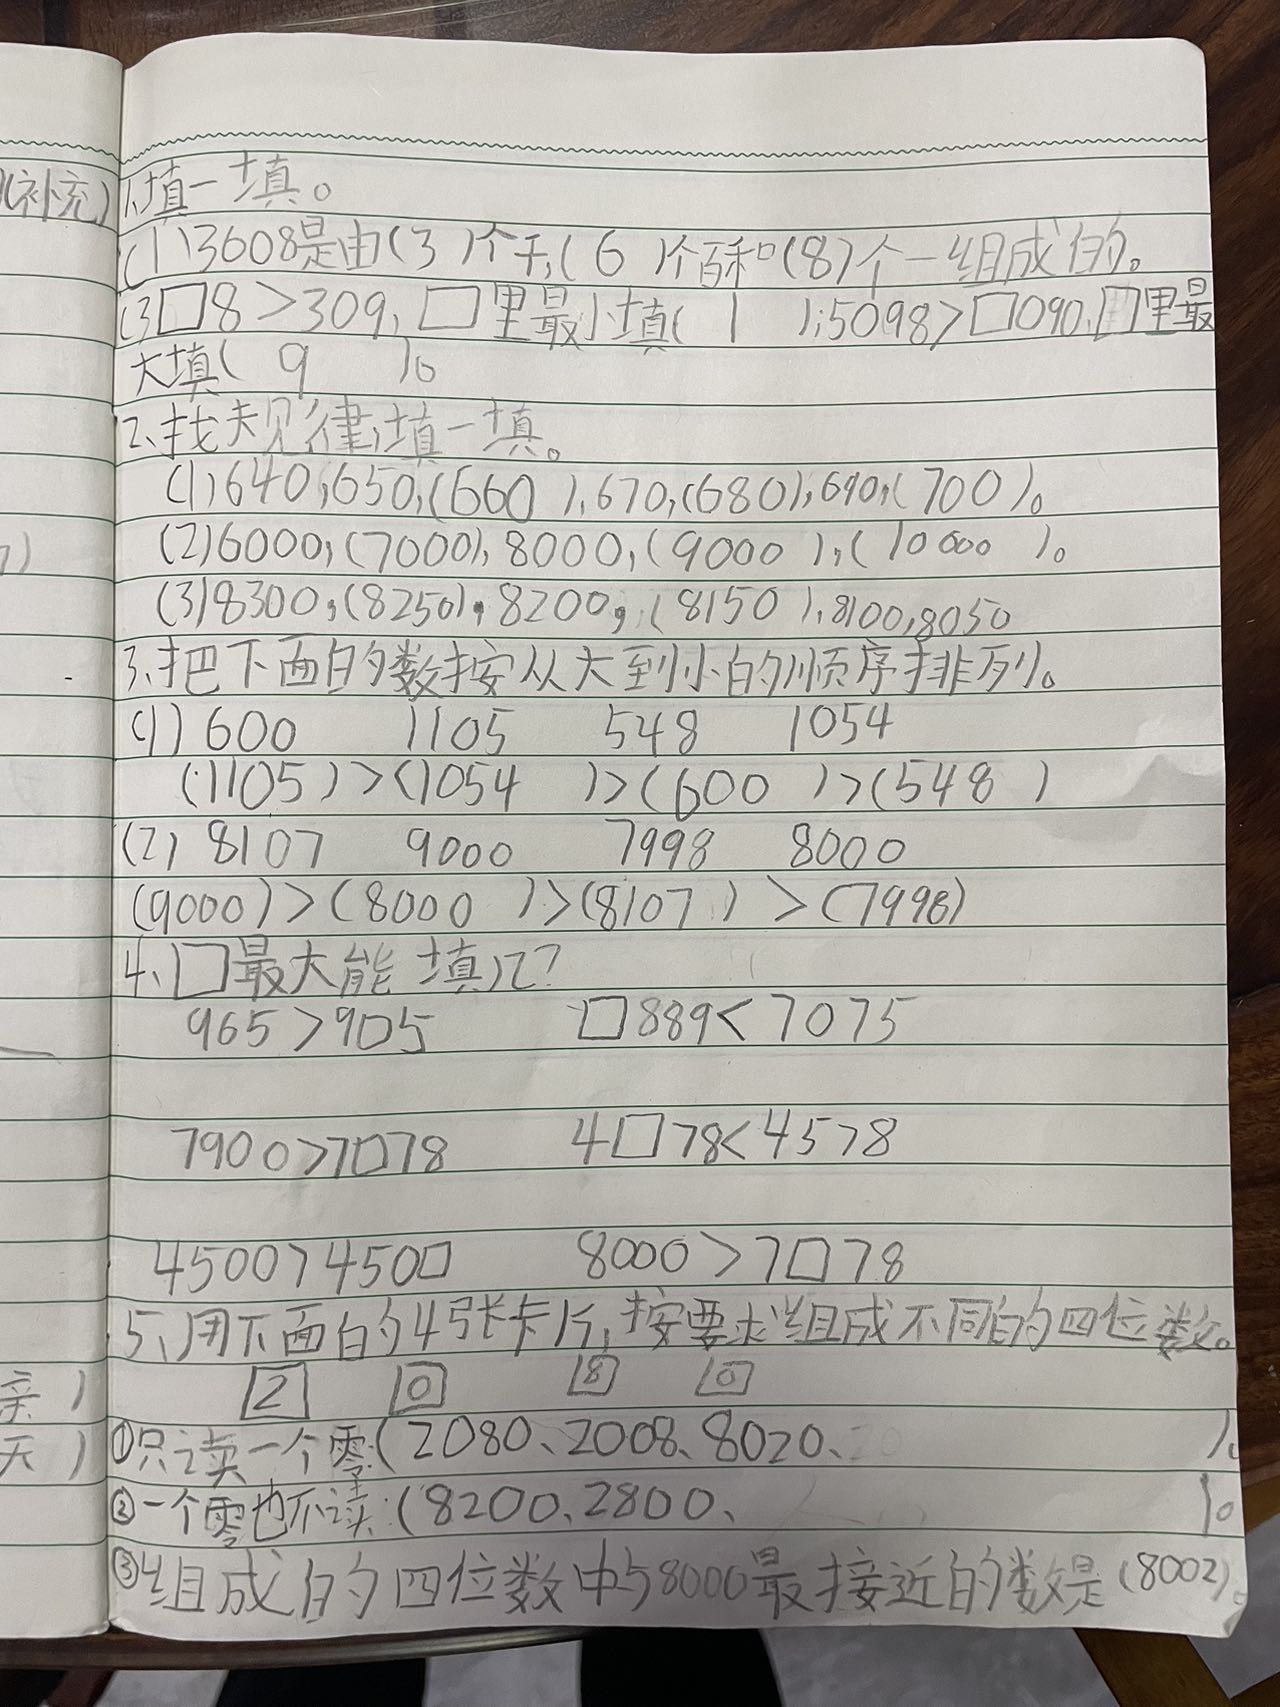 (补充)
亲)
天)
1、填一填。
(1)3608是由(3)个千,(6)个百和(8)个一组成的。
(3□8>309,□里最小填(1);5098>□090,□里最
大填(9)。
2、找规律,填一填。
(1)640,650,(660),670,(680),690,(700)。
(2)6000,(7000),8000,(9000),(10000)。
(3)8300,(8250),8200,(8150),8100,8050
3、把下面的数按从大到小的顺序排列。
(1)600 1105 548 1054
(1105)>(1054)>(600)>(548)
(2)8107 9000 7998 8000
(9000)>(8000)>(8107)>(7998)
4、□最大能填几?
965>905 □889<7075
7900>7□78 4□78<4578
4500>450□ 8000>7□78
5、用下面的4张卡片,按要求组成不同的四位数。
2 0 8 0
①只读一个零:(2080、2008、8020、)。
②一个零也不读:(8200、2800、)。
③组成的四位数中与8000最接近的数是(8002)。